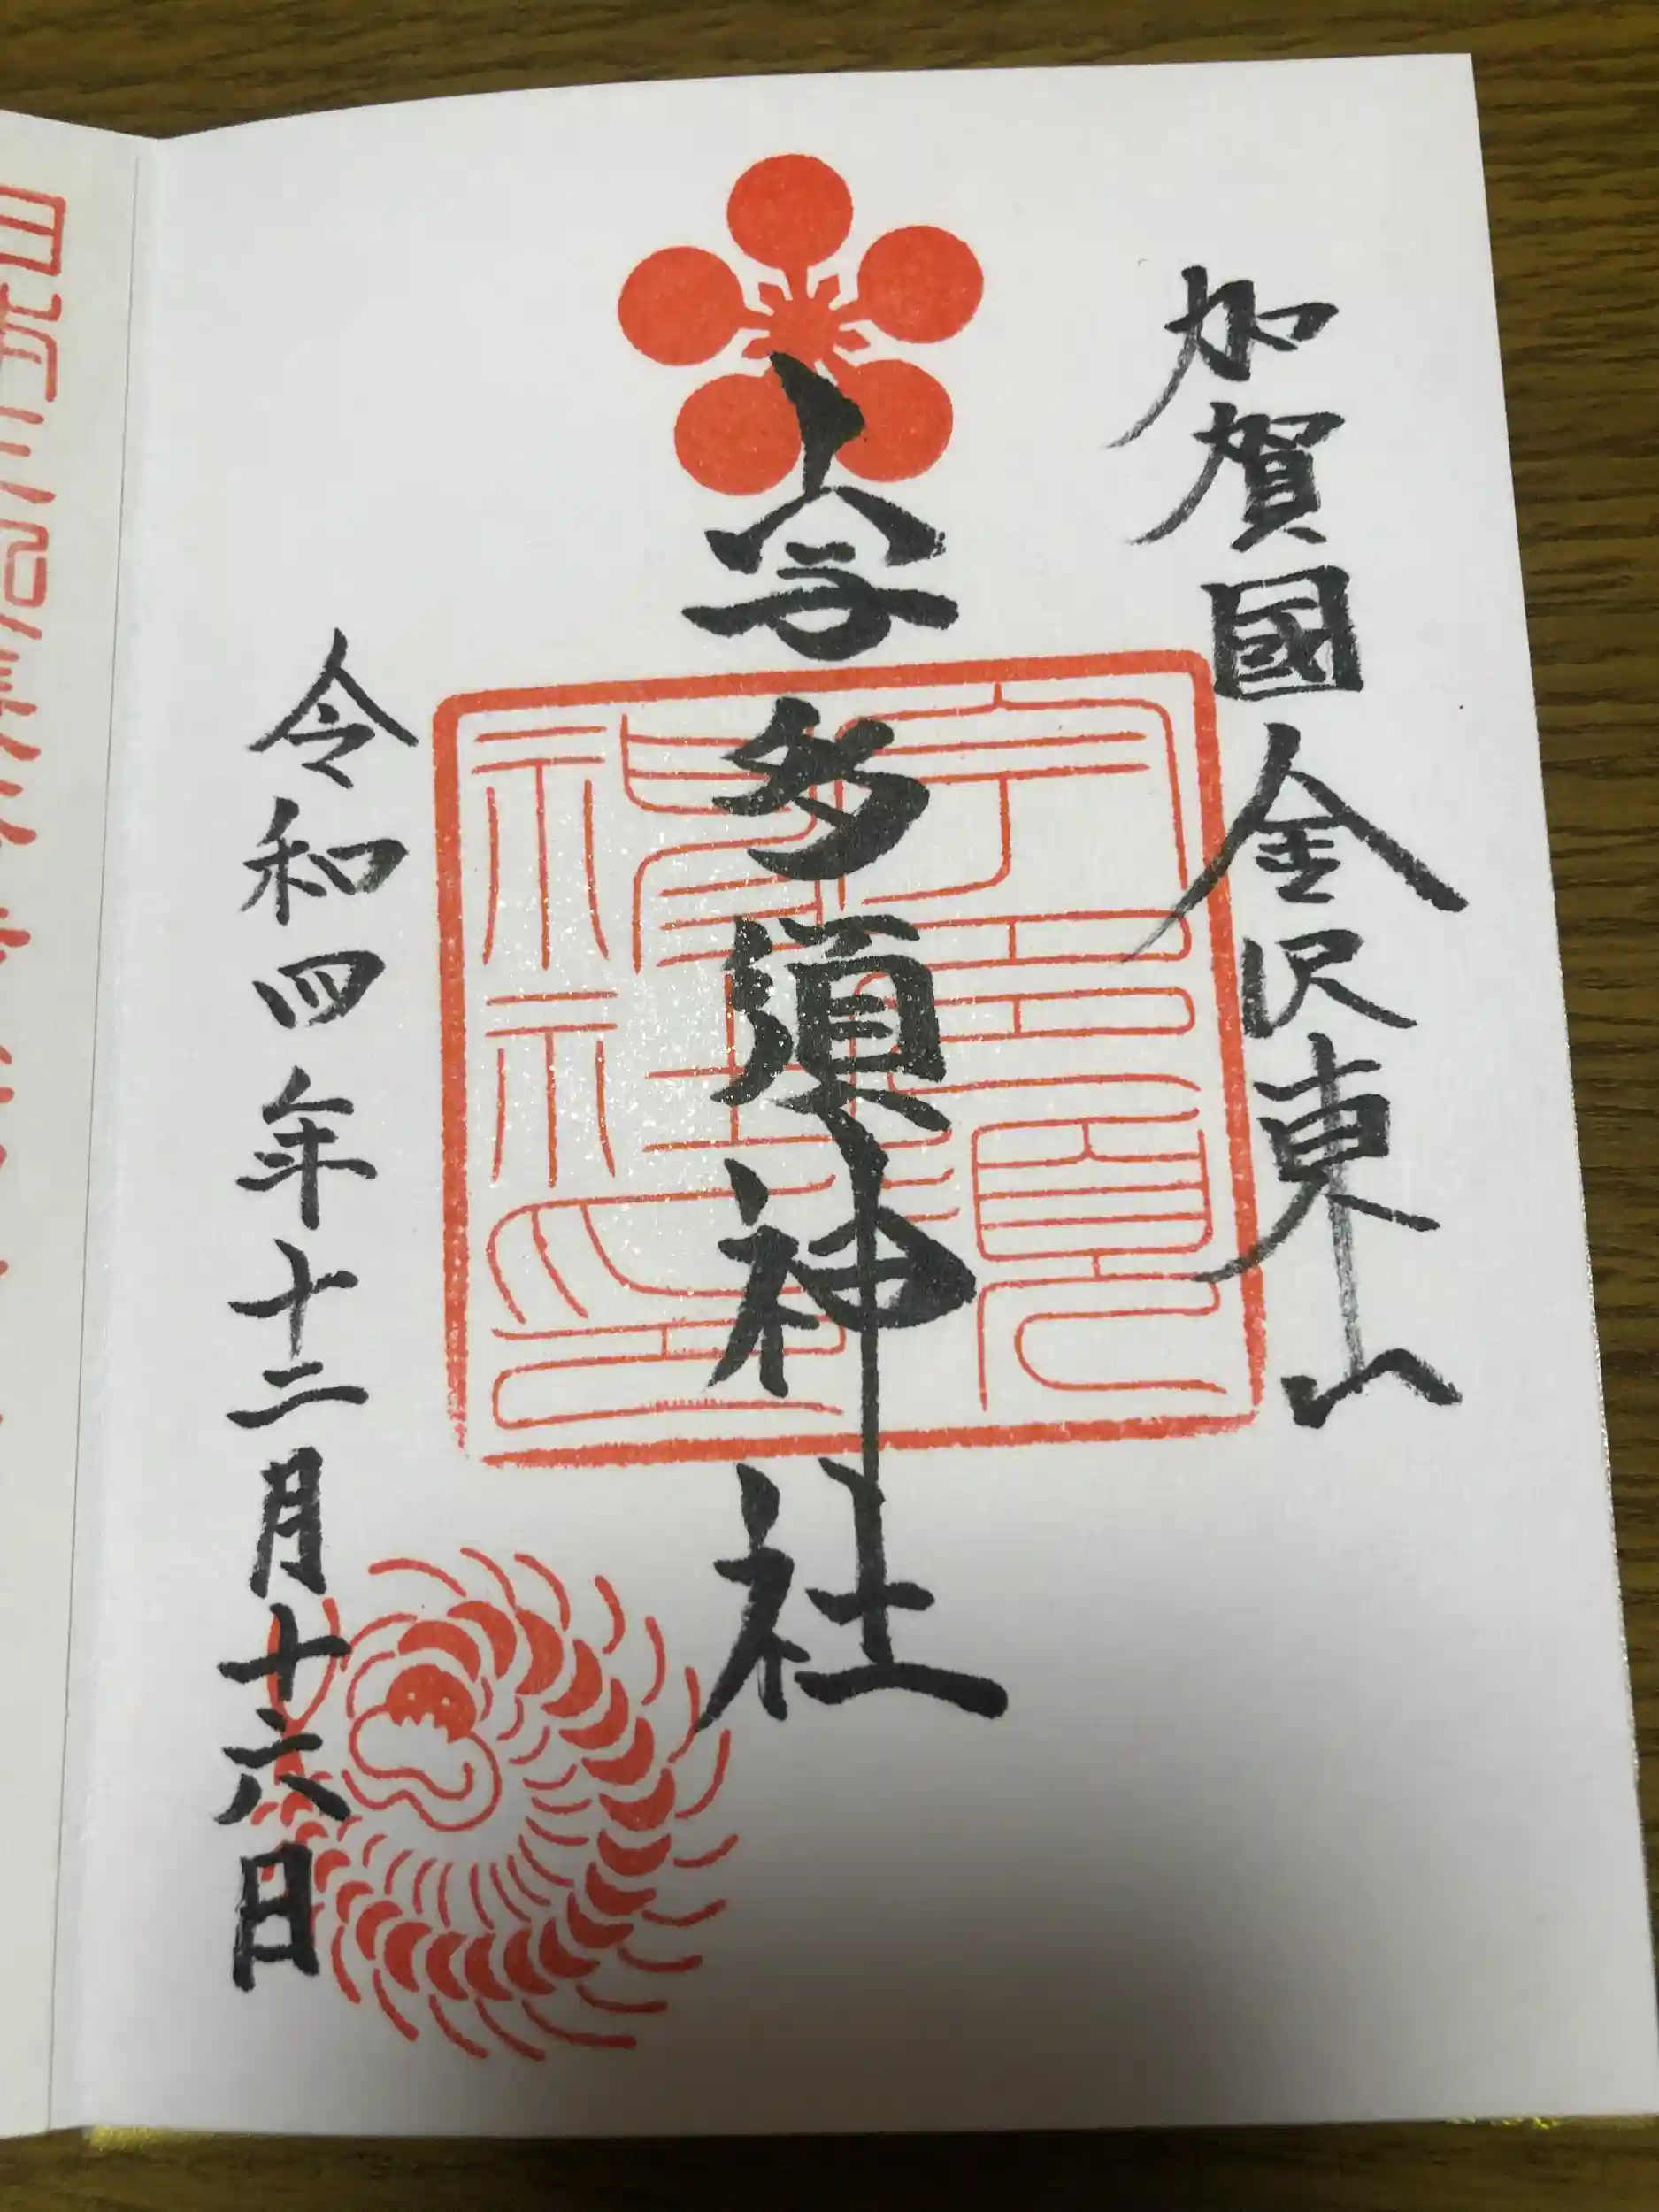 加賀國金沢東山
宇多須神社
令和四年十二月十六日